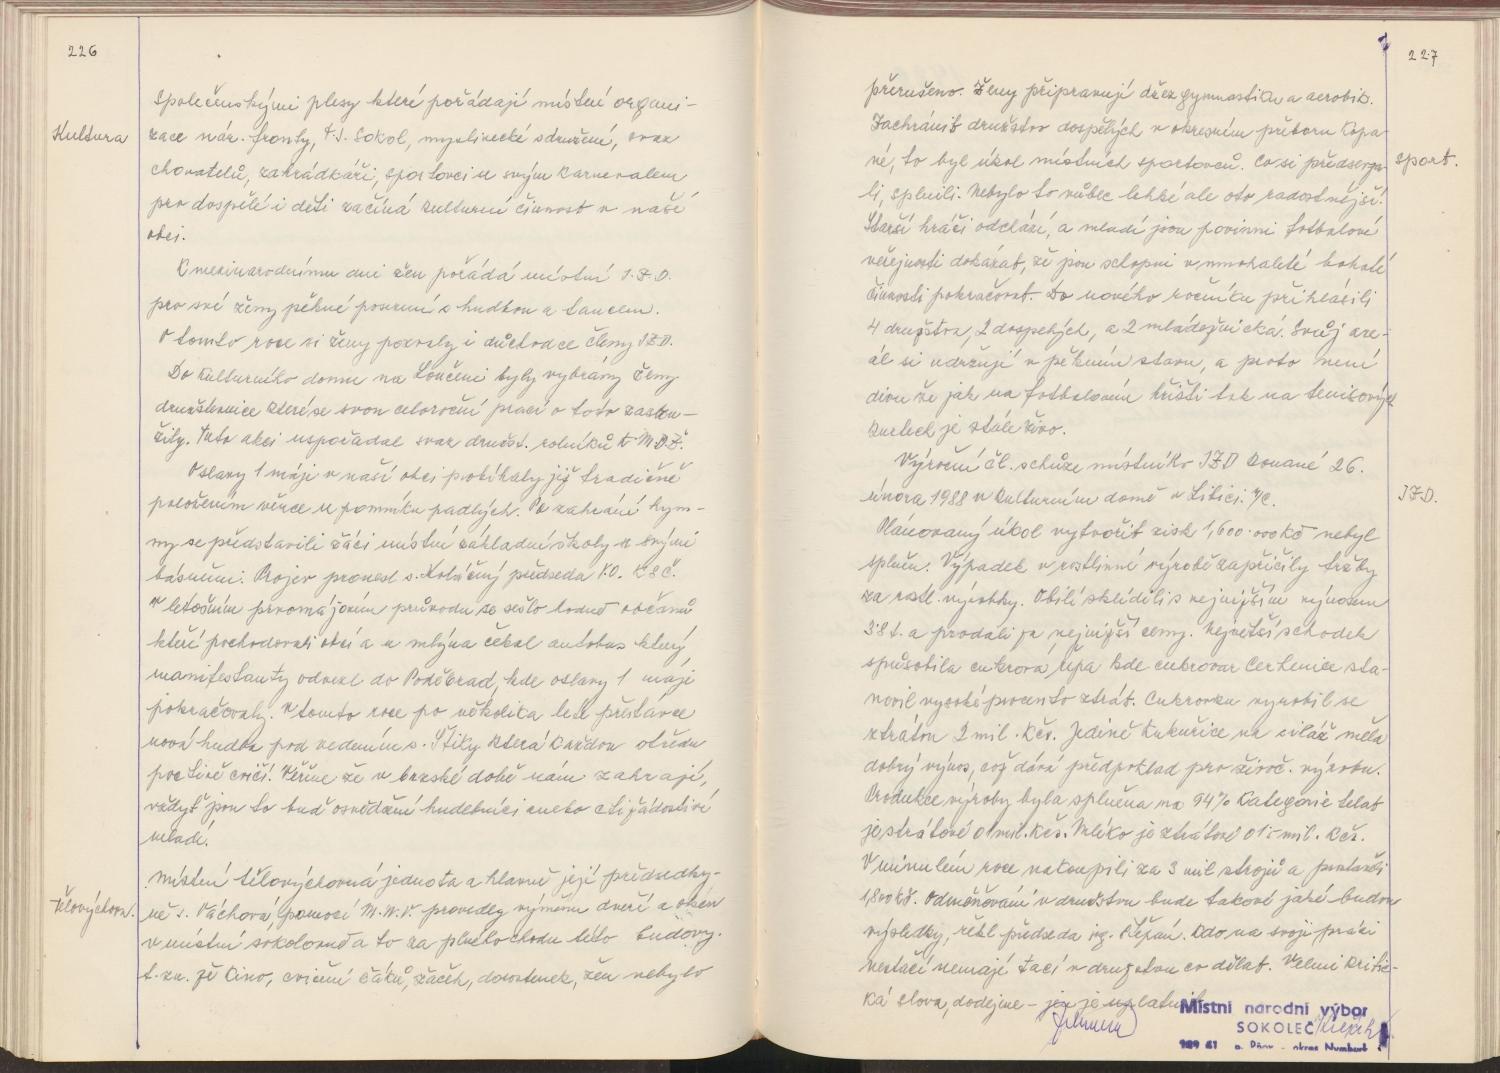 226
společenskými plesy které pořádají místní organi-
Kultura
zace nár. fronty, T.J. Sokol, myslivecké sdružení, svaz
chovatelů, zahrádkáři, sportovci se svým karnevalem
pro dospělé i děti začíná kulturní činnost v naší
obci.
K mezinárodnímu dni žen pořádá místní J.Z.D.
pro své ženy pěkné posezení s hudbou a tancem.
V tomto roce si ženy pozvaly i důchodce členy JZD.
Do kulturního domu na Loučeni byly vybrány ženy
družstevnice které se svou celoroční prací o toto zaslou-
žily. Tuto akci uspořádal svaz družst. rolníků k M.D.Ž.
Oslavy 1 máje v naší obci probíhaly již tradičně
položením věnce u pomníku padlých. Po zahrání hym-
ny se představili žáci místní základní školy se svými
básněmi. Projev pronesl s. Koláčný předseda V.O. KSČ.
V letošním prvomájovém průvodu se sešlo hodně občanů
kteří pochodovali obcí a u mlýna čekal autobus který
manifestanty odvezl do Poděbrad, kde oslavy 1 máje
pokračovaly. V tomto roce po několika leté přestávce
nová hudba pod vedením s. Štiky která každou středu
poctivě cvičí. Věříme že v brzské době nám zahrají,
vždyť jsou to buď osvědčení hudebníci anebo ctižádostiví
mladí.
Místní tělovýchovná jednota a hlavně její předsedky-
Tělovýchova.
ně s. Váchová, pomocí M.N.V. provedly výměnu dveří a oken
v místní sokolovně a to za plného chodu této budovy.
t. zn. že kino, cvičení žáků, žaček, dorostenek, žen nebylo
227
přerušeno. Ženy připravují džez gymnastiku a aerobik.
Zachránit družstvo dospělých v okresním přeboru kopa-
né, to byl úkol místních sportovců. Co si předsevza-
sport.
li, splnili. Nebylo to vůbec lehké ale oto radostnější.
Starší hráči odchází, a mladí jsou povinni fotbalové
veřejnosti dokázat, že jsou schopni v mnohaleté bohaté
činnosti pokračovat. Do nového ročníku přihlásili
4 družstva, 2 dospělých, a 2 mládežnická. Svůj are-
ál si udržují v pěkném stavu, a proto není
divu že jak na fotbalovém hřišti tak na tenisových
kurtech je stále živo.
Výroční čl. schůze místního JZD konané 26.
února 1988 v kulturním domě v Libici. n/c.
JZD.
Plánovaný úkol vytvořit zisk 1,600.000 Kč nebyl
splněn. Výpadek v rostlinné výrobě zapříčily tržby
za rostl. výrobky. Obilí sklidili s nejnižším výnosem
3.8 t. a prodali za nejnižší ceny. Největší schodek
spůsobila cukrová řepa kde cukrovar Cerhenice sta-
novil vysoké procento ztrát. Cukrovka vyrobil se
ztrátou 2 mil. Kčs. Jedině kukuřice na siláž měla
dobrý výnos, což dává předpoklad pro živoč. výrobu.
Produkce výroby byla splněna na 94% kategorie telat
je strátové o 1 mil. Kčs. Mléko je ztrátové o mil. Kčs.
V minulém roce nakoupili za 3 mil strojů a postavili
Odměňování v družstvu bude takové jaké budou
výsledky, řekl předseda ing. Štěpán. Kdo na svoji práci
nestačí nemají tací v družstvu co dělat. Velmi kritic-
ká slova, dodejme – jen je uplatnit.
Místní národní výbor
SOKOLEČ
289 41 p. Pňov - okres Nymburk